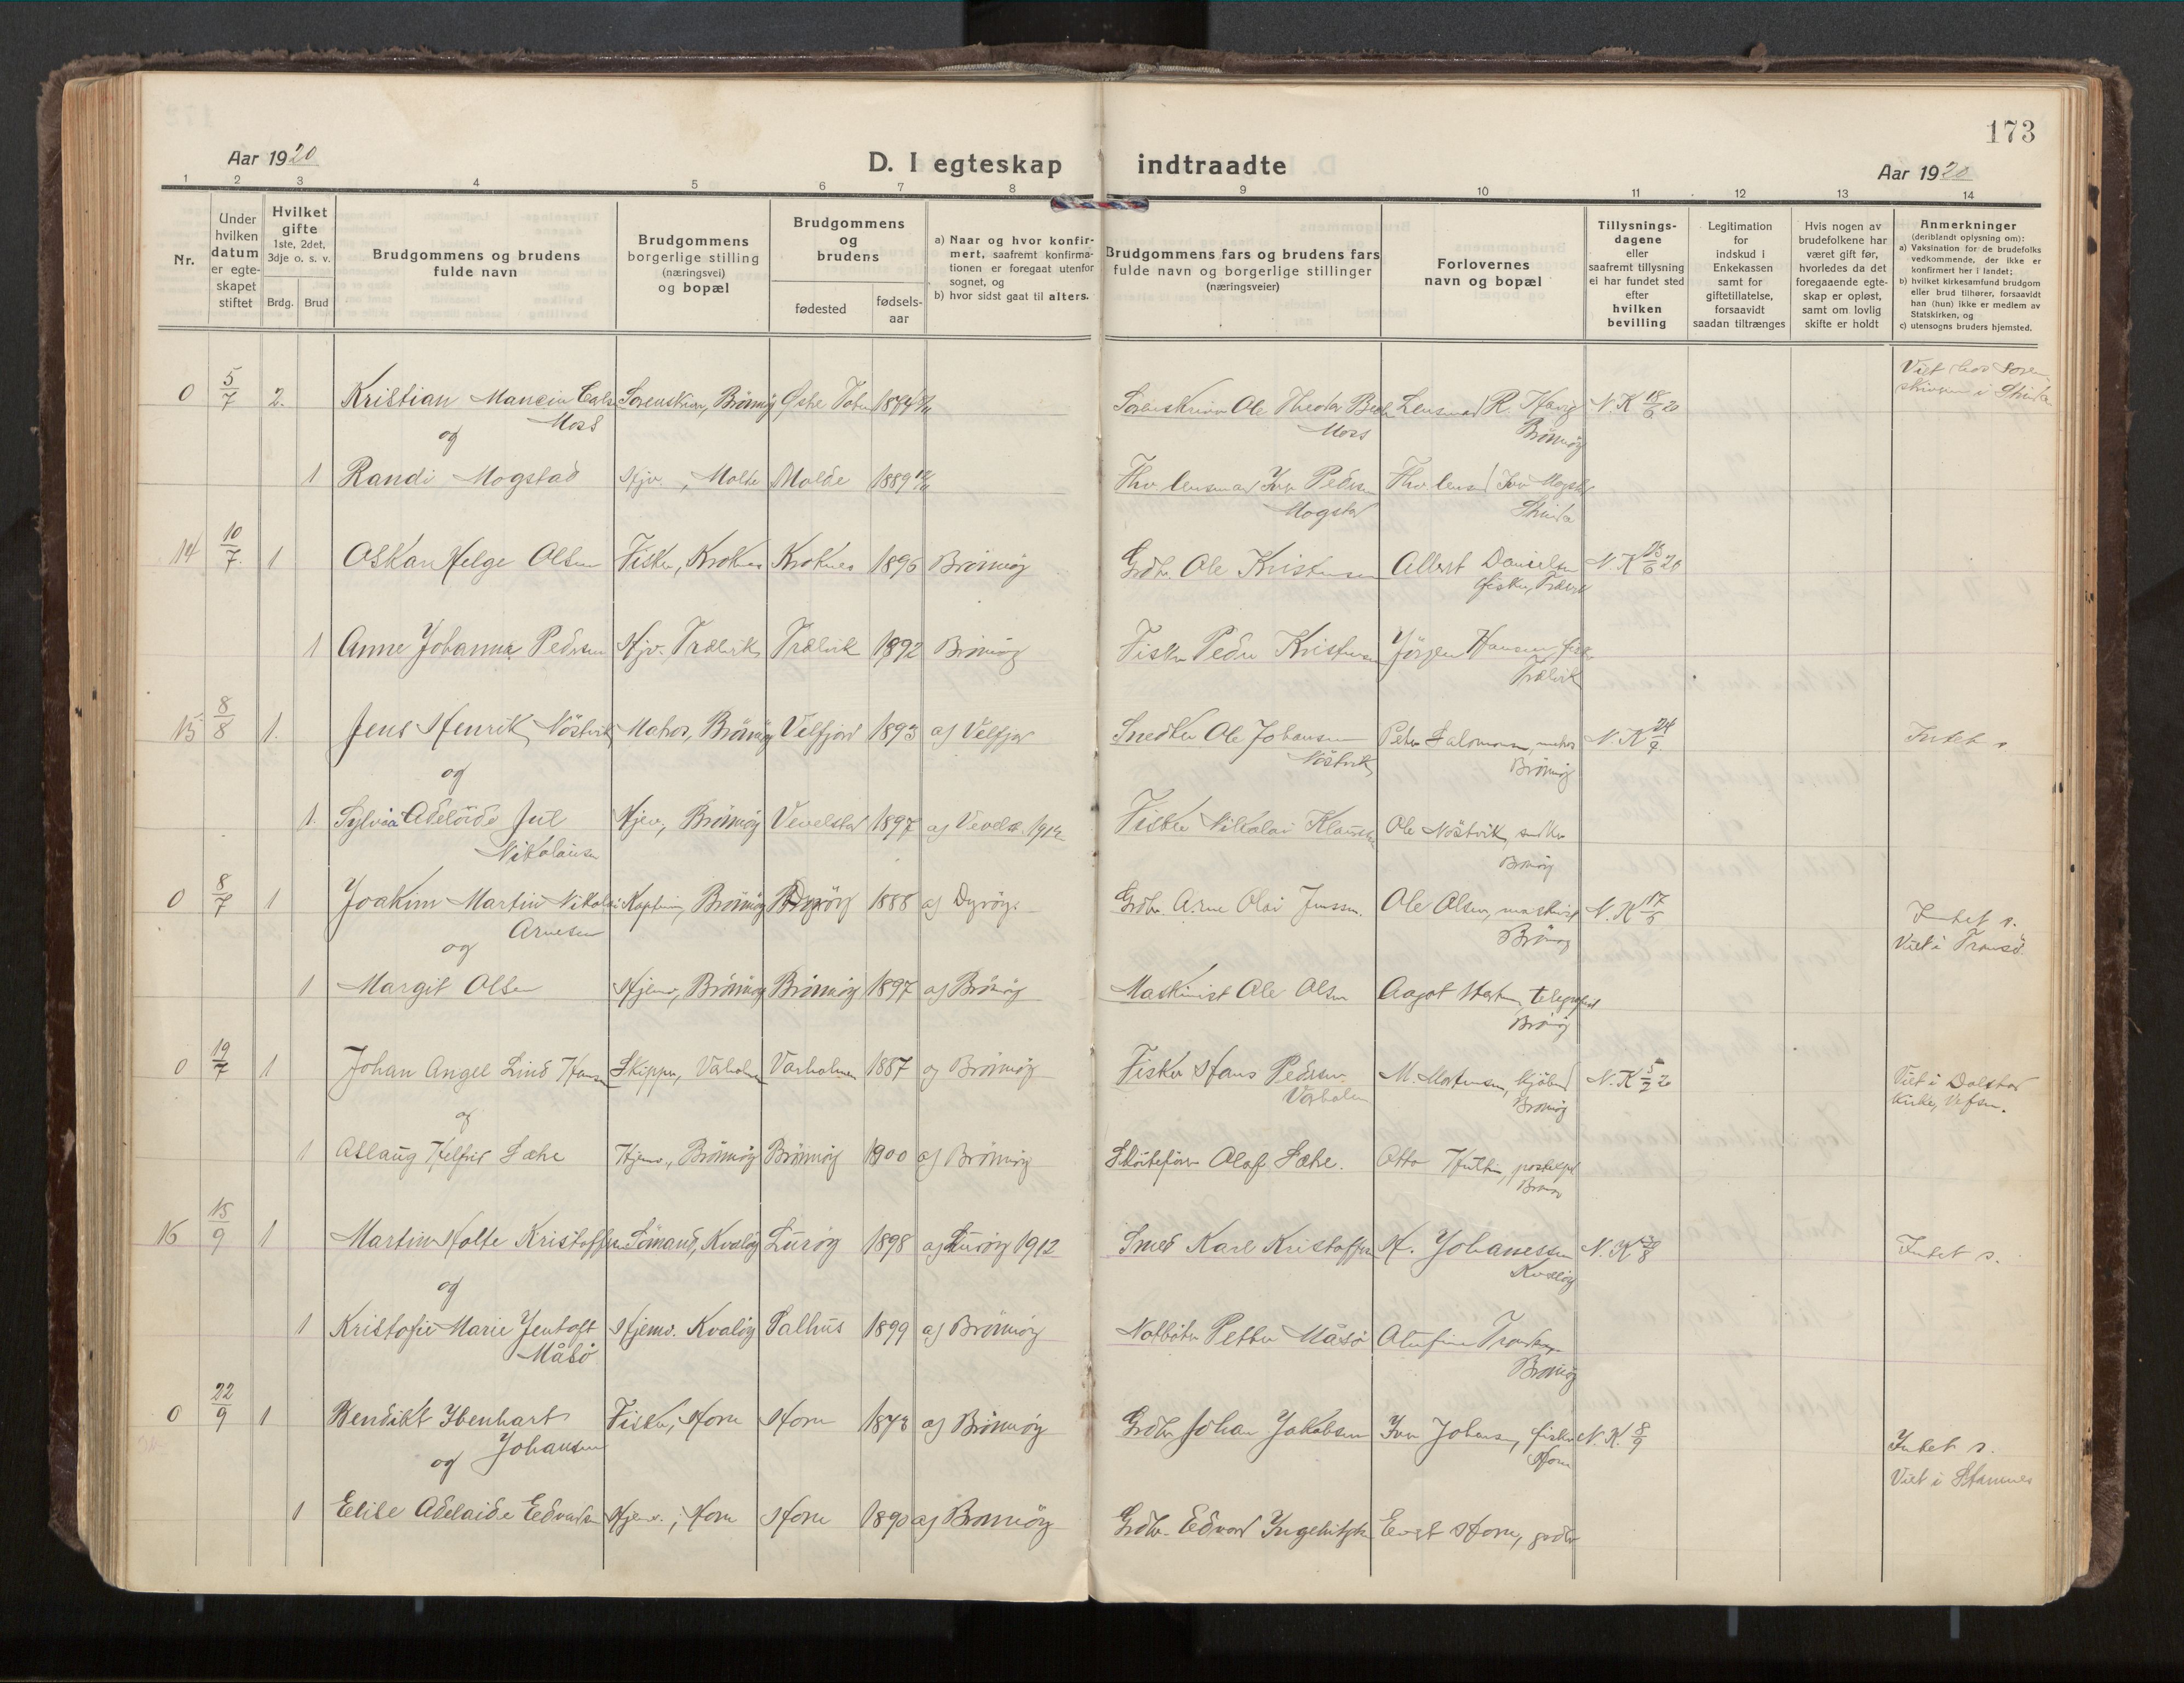 173
Aar 1920
D. I egteskap indtraadte
Aar 1920
1 2 3 4 5 6 7 8 9 10 11 12 13 14
Nr.
Under hvilken datum er egte-skapet stiftet
Hvilket gifte
1ste, 2det, 3dje o. s. v.
Brdg. Brud
Brudgommens og brudens fulde navn
Brudgommens borgerlige stilling (næringsvei) og bopæl
Brudgommens og brudens
fødested
fødsels-aar
a) Naar og hvor konfir-mert, saafremt konfirma-tionen er foregaat utenfor sognet, og
b) hvor sidst gaat til alters.
Brudgommens fars og brudens fars fulde navn og borgerlige stillinger (næringsveier)
Forlovernes navn og bopæl
Tillysnings-dagene eller saafremt tillysning ei har fundet sted efter hvilken bevilling
Legitimation for indskud i Enkekassen samt for giftetillatelse, forsaavidt saadan tiltrænges
Hvis nogen av brudefolkene har været gift før, hvorledes da det foregaaende egte-skap er opløst, samt om lovlig skifte er holdt
Anmerkninger
(deriblandt oplysning om):
a) Vaksination for de brudefolks vedkommende, der ikke er konfirmert her i landet;
b) hvilket kirkesamfund brudgom eller brud tilhører, forsaavidt han (hun) ikke er medlem av Statskirken, og
c) utensogns bruders hjemsted.
0 5/7 2. Kristian Sorenskriver, Brönnöy 1874 Sorenskriver Ole Theodor Lensmand R. N.K 18/6 20
Moss Moss Brönnöy
og
1 Randi Mogstad Hjv., Molde Molde 1889 Fhv lensmand Iver Pedersen Fhv lensmd Iver Mogstad
Mogstad Strinda
14 10/7. 1 Oskar Helge Olsen Fisker, Kroknes Kroknes 1896 Brönnöy Grdbr. Ole Kristensen Albert Danielsen N.K 13/6 20
fisker, Trælvik
1 Anne Johanna Pedersen Hjv. Trælvik Trælvik 1892 Brönnöy Fisker Peder Kristensen Jörgen Hansen, fisker
Trælvik
15 8/8 1. Jens Henrik Nöstvik Matros, Brönnöy Velfjord 1893 af Velfjor Snedker Ole Johansen Peter Salomonsen, matros N.K Intet s
Nöstvik Brönnöy
og
1. Sylvia Adelöide Jul Hjev., Brönnöy Vevelstad 1897 af Vevelst. 1912 Fisker Nikolai Klausen Ole Nöstvik, snedker
Nikolaisen Brönnöy
0 8/7 1 Joakim Martin Nikolai Kaptein, Brönnöy Dyröy 1888 af Dyröy. Grdbr. Arne Olai Jenssen. Ole Olsen, maskinist N.K 17/6 Intet s.
Arnesen Brönnöy Viet i Tromsö.
og
1 Margit Olsen Hjemv, Brönnöy Brönnöy 1897 af Brönnöy Maskinist Ole Olsen Aagot telegrafist
Brönnöy
0 19/7 1 Johan Angel Lind Hansen Skipper, Varholmen Varholmen 1887 af Brönnöy Fisker Hans Pedersen M. Mortensen, kjöbmd N.K 20 Viet i Dolstad
Varholm Brönnöy kirke, Vefsn.
og
1 Aslaug Helfrid Sæhre Hjemv., Brönnöy Brönnöy 1900 af Brönnöy Olaf Otto
16 15/9 1 Martin Holte Kristoffersen Sömand, Kvalöy Luröy 1898 af Luröy 1912 Smed Karl Kristoffersen H. Johanessen N.K Intet s.
Kvalöy
og
1 Kristofie Marie Jentoft Hjemv. Kvalöy Salhus 1899 af Brönnöy Notböter Petter Måsö Olufine
Måsö Brönnöy
0 22/9 1 Bendikt Ibenhart Fisker, Horn Horn 1873 af Brönnöy Grdbr Johan Jakobsen Iver Johansen, fisker N.K. 8/9 Intet s.
Johansen Horn Viet i Stamnes
og
1 Elise Adelaide Edvardsen Hjemv., Horn Horn 1890 af Brönnöy Grdbr. Edvard Ingebrigtsen Horn, grdbr